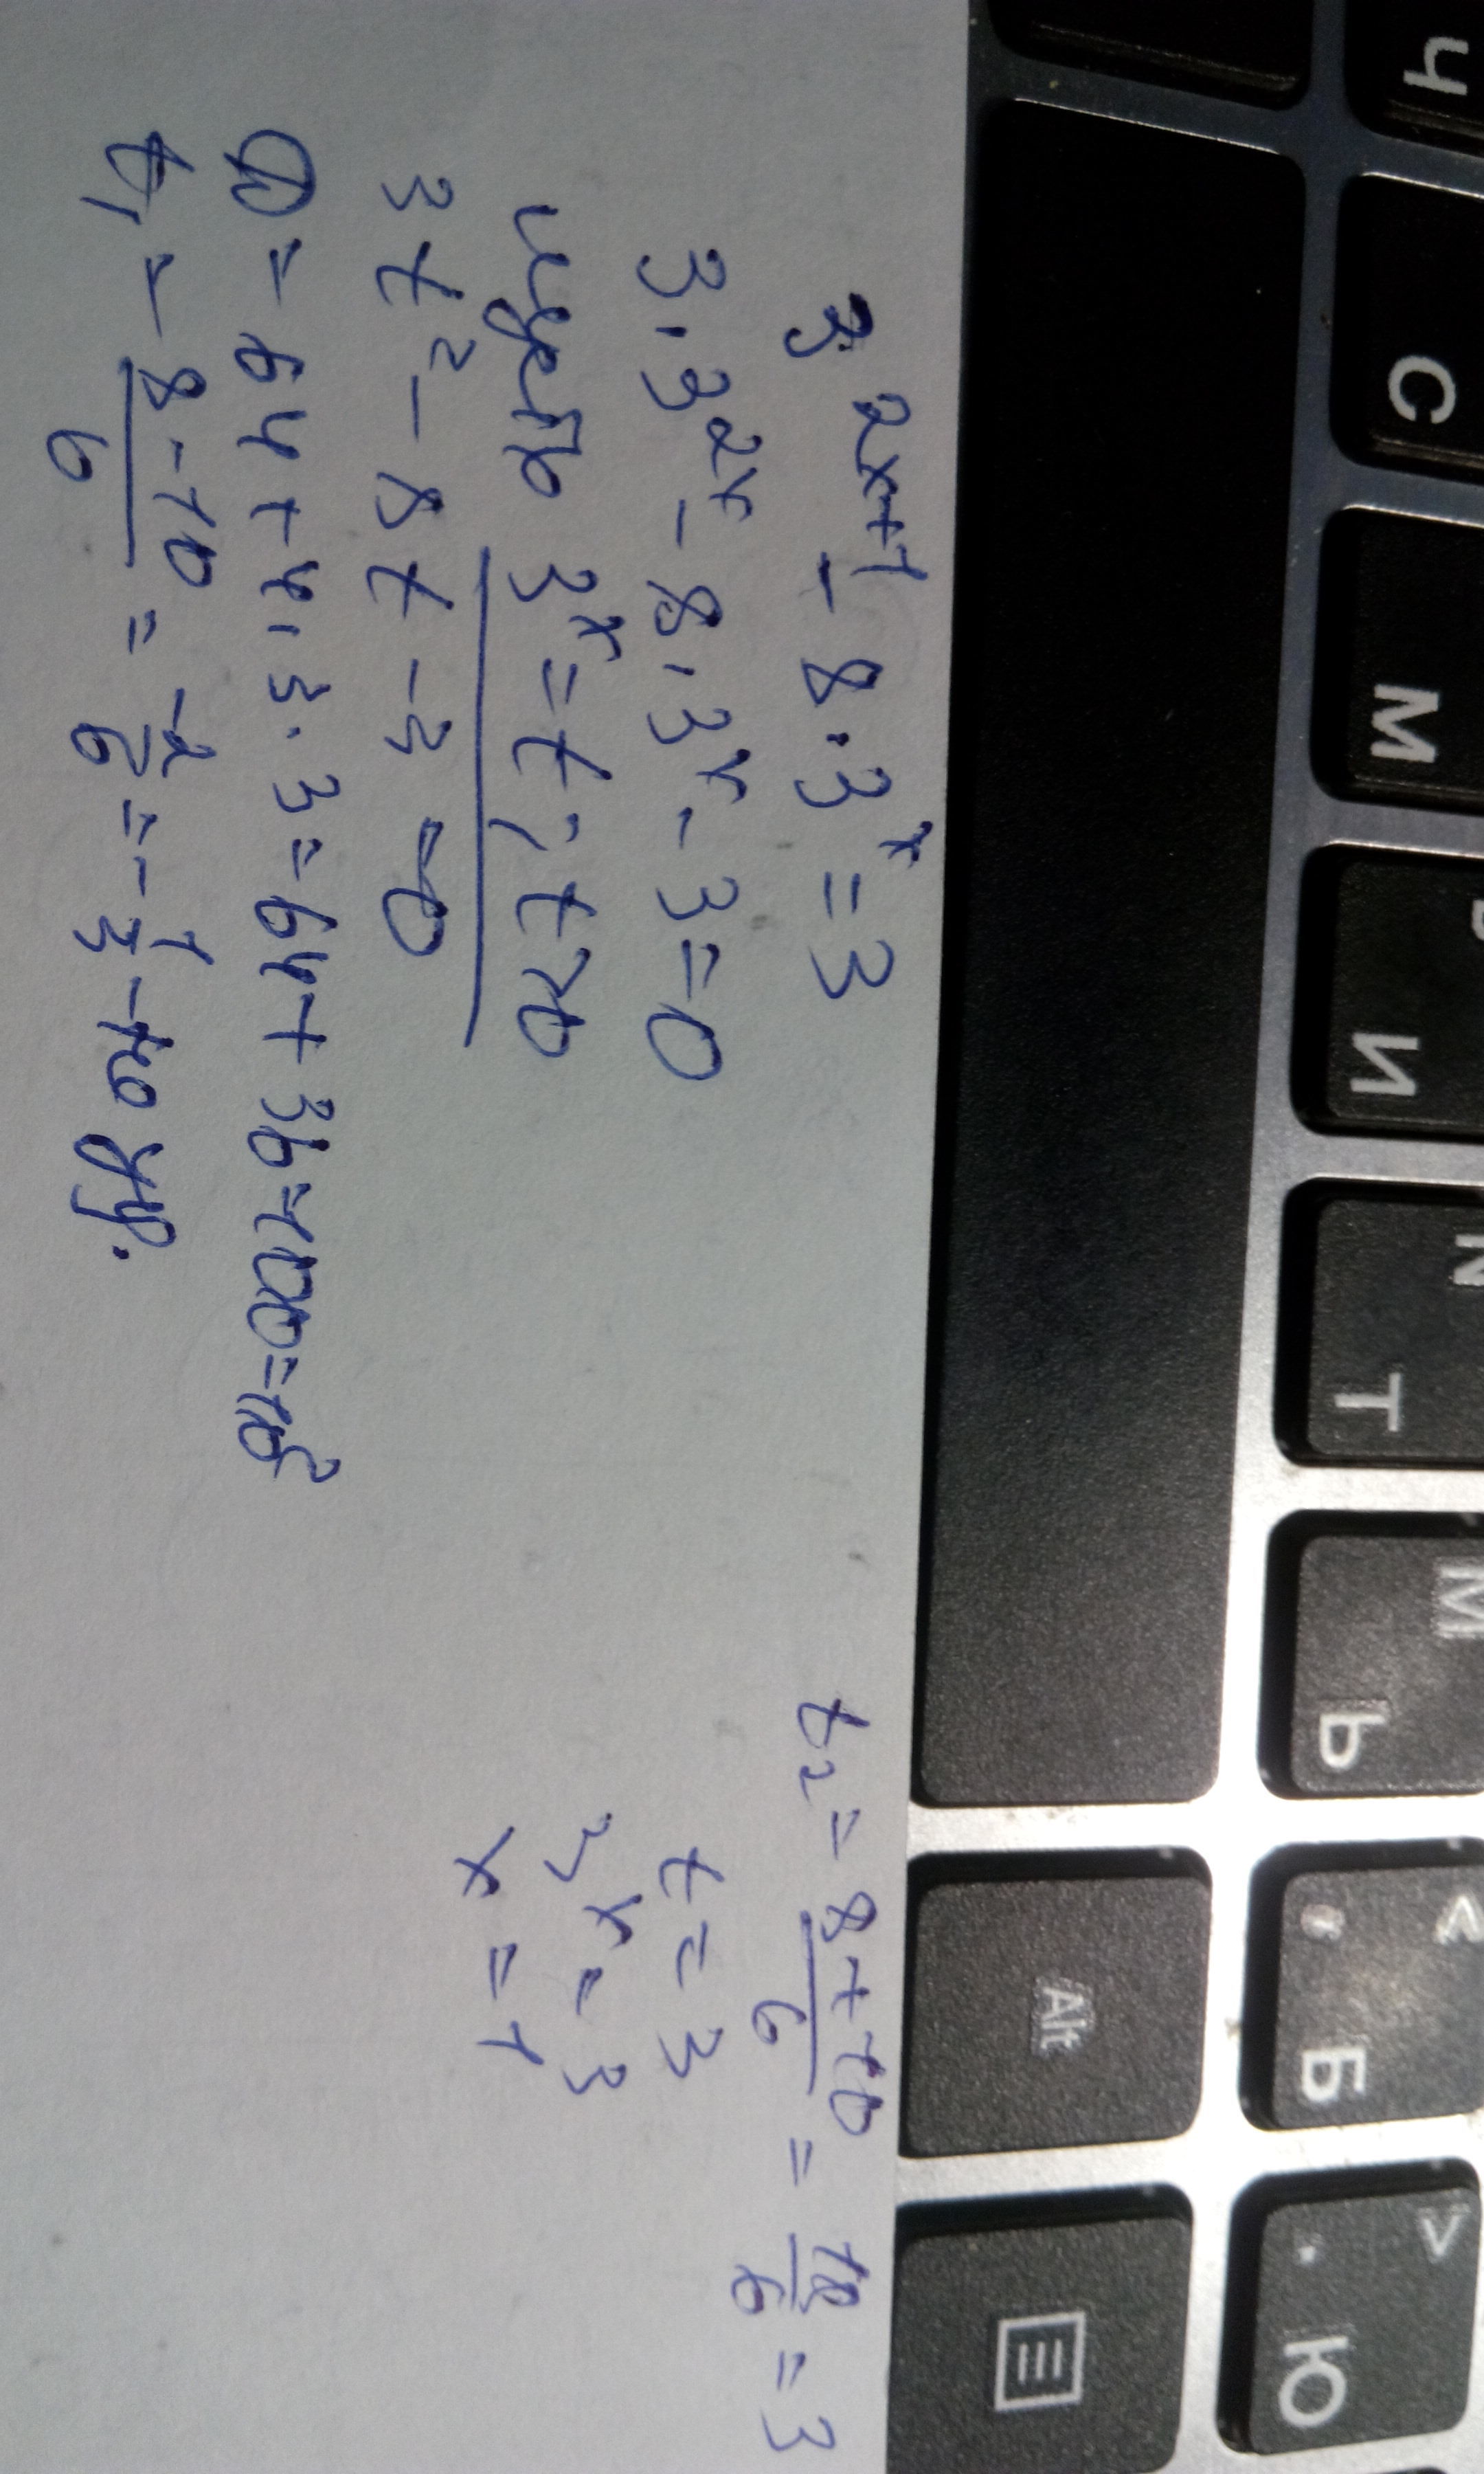 3^{2x+1} - 8 · 3^x = 3
3 · 3^{2x} - 8 · 3^x - 3 = 0
пусть 3^x = t ; t > 0
3t² - 8t - 3 = 0
D = 64 + 4 · 3 · 3 = 64 + 36 = 100 = 10²
t₁ = \frac{8-10}{6} = \frac{-2}{6} = -\frac{1}{3} -
t₂ = \frac{8+10}{6} = \frac{18}{6} = 3
t = 3
3^x = 3
x = 1
Ч
С
М
И
N Т
M Ь
Alt
< , Б
> . Ю